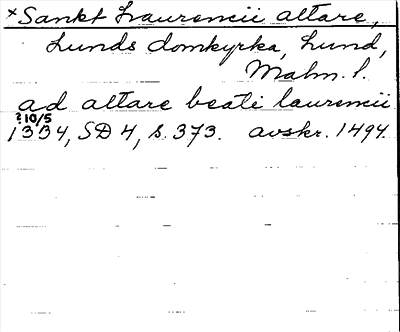 ×Sankt Laurencii altare,
Lunds domkyrka, Lund,
Malm. l.
ad altare beati laurencii
? 10/5
1334, SD 4, s. 373. avskr. 1494.